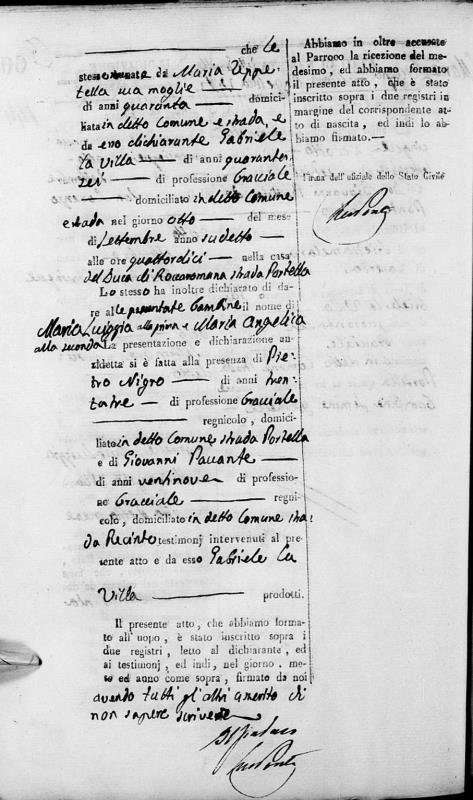 che le
stesse son nate da Maria Uppe-
tella sua moglie
di anni quaranta domici-
liata in detto Comune e strada, e
da esso dichiarante Gabriele
La Villa di anni quaranta-
sei di professione Bracciale
domiciliato in detto Comune
e strada nel giorno otto del mese
di Settembre anno sudetto
alle ore quattordici nella casa
del Duca di Roccaromana strada Portella
Lo stesso ha inoltre dichiarato di da-
re alle presentate bambine il nome di
Maria Luiggia alla prima e Maria Angelica
alla seconda La presentazione e dichiarazione an-
zidetta si è fatta alla presenza di Pie-
tro Nigro di anni tren-
tatre di professione Bracciale
regnicolo, domici-
liato in detto Comune strada Portella
e di Giovanni
di anni ventinove di professio-
ne Bracciale regni-
colo, domiciliato in detto Comune stra-
da Recinto testimonj intervenuti al pre-
sente atto e da esso Gabriele La
Villa prodotti.
Il presente atto, che abbiamo forma-
to all' uopo, è stato inscritto sopra i
due registri, letto al dichiarante, ed
ai testimonj, ed indi, nel giorno, me-
se ed anno come sopra, firmato da noi
avendo tutti gli altri asserito di
non sapere scrivere
Il Sindaco
Abbiamo in oltre accusato
al Parroco la ricezione del me-
desimo, ed abbiamo formato
il presente atto, che è stato
inscritto sopra i due registri in
margine del corrispondente at-
to di nascita, ed indi lo ab-
biamo firmato.—
Firma dell'uffiziale dello Stato Civile